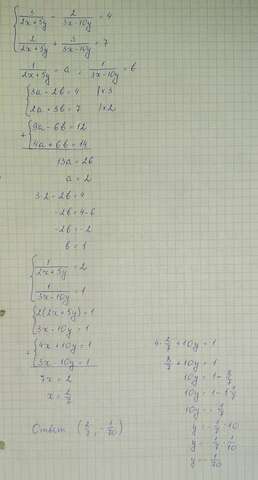 { 3/(2x+5y) - 2/(3x-10y) = 4
2/(2x+5y) + 3/(3x-10y) = 7
1/(2x+5y) = a , 1/(3x-10y) = b
{ 3a - 2b = 4 | ×3
2a + 3b = 7 | ×2
+ { 9a - 6b = 12
4a + 6b = 14
13a = 26
a = 2
3·2 - 2b = 4
-2b = 4-6
-2b = -2
b = 1
{ 1/(2x+5y) = 2
1/(3x-10y) = 1
{ 2(2x+5y) = 1
3x - 10y = 1
+ { 4x + 10y = 1
3x - 10y = 1
7x = 2
x = 2/7
4·2/7 + 10y = 1
8/7 + 10y = 1
10y = 1 - 8/7
10y = 1 - 1 1/7
10y = -1/7
y = -1/7 : 10
y = -1/7 · 1/10
y = -1/70
Ответ (2/7 ; -1/70)